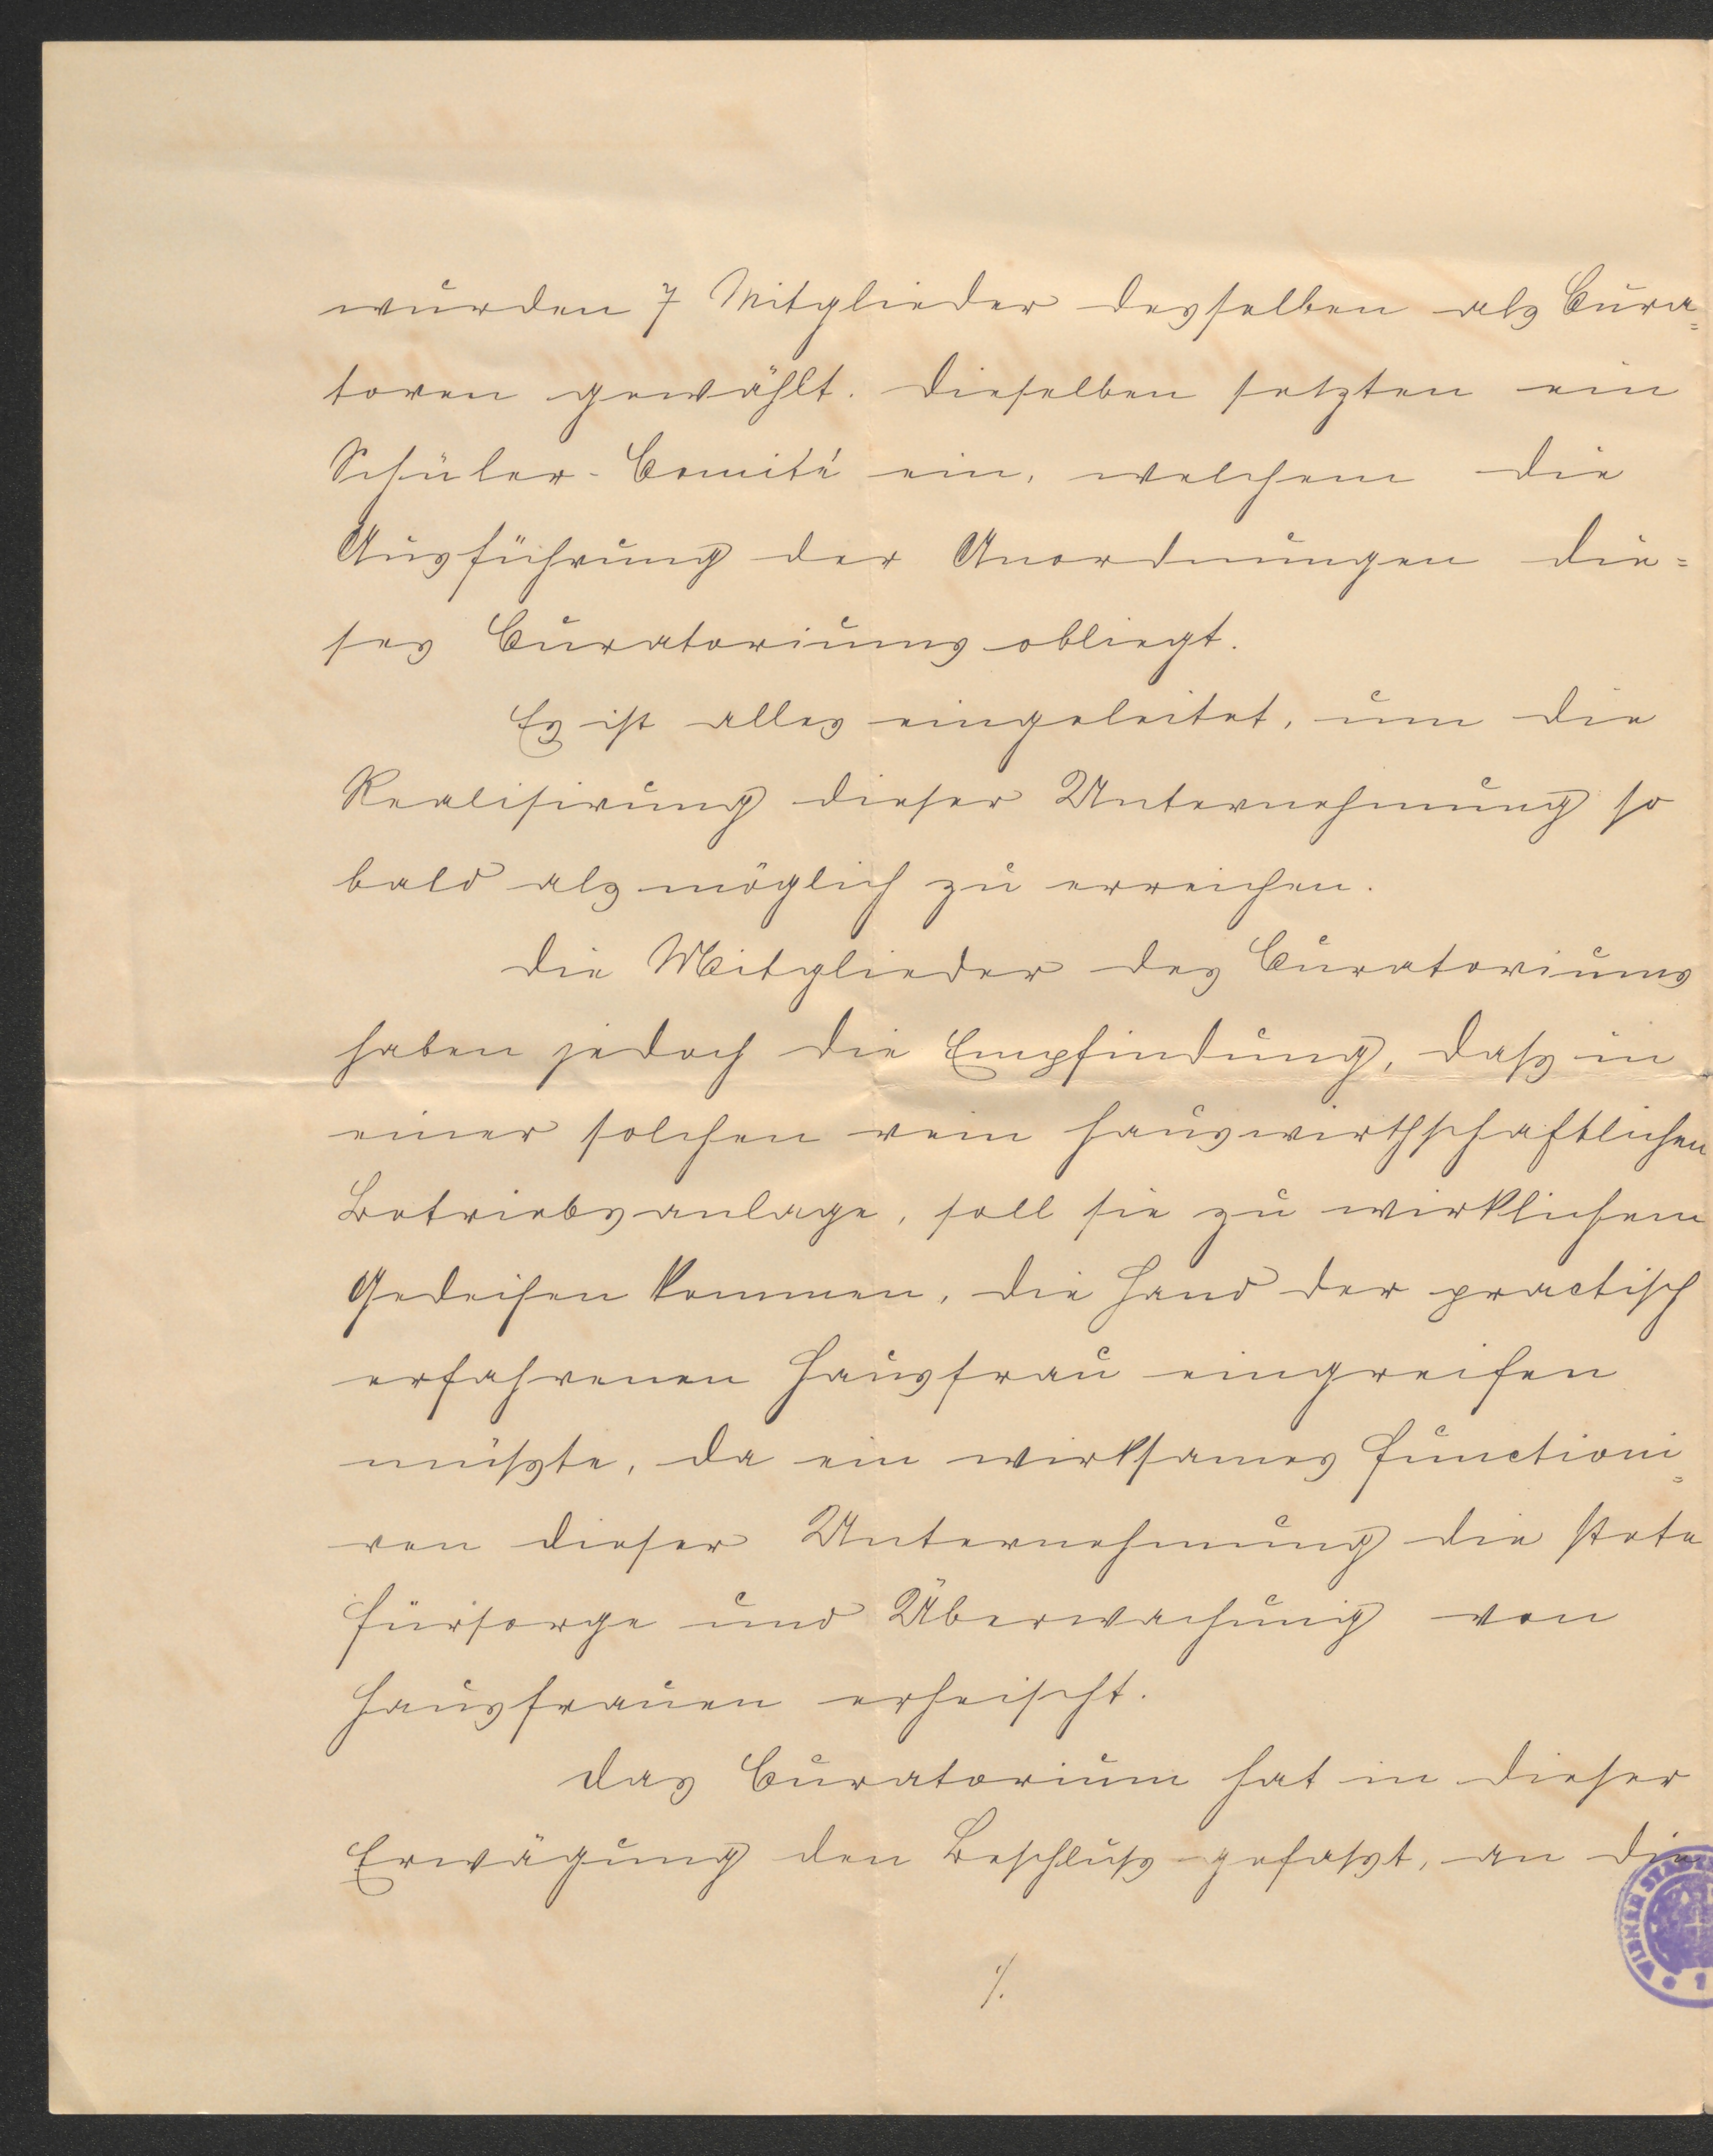 wurden 7 Mitglieder desselben als Cura=
toren gewählt. Dieselben setzten ein
Schüler-Comité ein, welchem die
Ausführung der Anordnungen die=
ses Curatoriums obliegt.
Es ist alles eingeleitet, um die
Realisirung dieser Unternehmung so
bald als möglich zu erreichen.
Die Mitglieder des Curatoriums
haben jedoch die Empfindung, dass in
einer solchen rein hauswirthschaftlichen
Betriebsanlage, soll sie zu wirklichem
Gedeihen kommen, die Hand der practisch
erfahrenen Hausfrau eingreifen
müsste, da ein wirksames Functioni=
ren dieser Unternehmung die stete
Fürsorge und Überwachung von
Hausfrauen erheischt.
Das Curatorium hat in dieser
Erwägung den Beschluss gefasst, an die
./.
WIENER